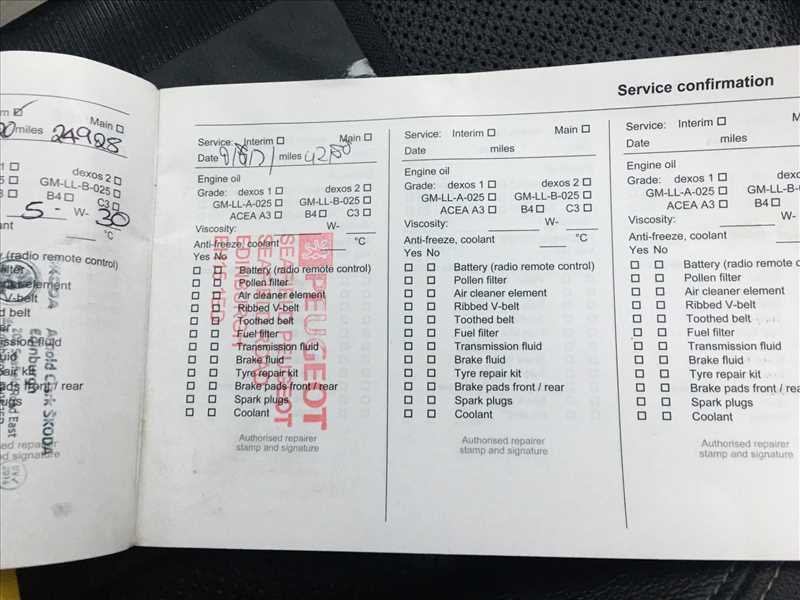 Service confirmation
miles 24928
Main ☐
dexos 2 ☐
GM-LL-B-025 ☐
B4 ☐ C3 ☐
5- W- 30
°C
(radio remote control)
element
V-belt
fluid
pads front / rear
ŠKODA
Arnold Clark ŠKODA
Edinburgh
Service: Interim ☐ Main ☐
Date miles
Engine oil
Grade: dexos 1 ☐ dexos 2 ☐
GM-LL-A-025 ☐ GM-LL-B-025 ☐
ACEA A3 ☐ B4 ☐ C3 ☐
Viscosity: W-
Anti-freeze, coolant °C
Yes No
☐ ☐ Battery (radio remote control)
☐ ☐ Pollen filter
☐ ☐ Air cleaner element
☐ ☐ Ribbed V-belt
☐ ☐ Toothed belt
☐ ☐ Fuel filter
☐ ☐ Transmission fluid
☐ ☐ Brake fluid
☐ ☐ Tyre repair kit
☐ ☐ Brake pads front / rear
☐ ☐ Spark plugs
☐ ☐ Coolant
Authorised repairer
stamp and signature
PEUGEOT
EDINBURGH
Service: Interim ☐ Main ☐
Date miles
Engine oil
Grade: dexos 1 ☐ dexos 2 ☐
GM-LL-A-025 ☐ GM-LL-B-025 ☐
ACEA A3 ☐ B4 ☐ C3 ☐
Viscosity: W-
Anti-freeze, coolant °C
Yes No
☐ ☐ Battery (radio remote control)
☐ ☐ Pollen filter
☐ ☐ Air cleaner element
☐ ☐ Ribbed V-belt
☐ ☐ Toothed belt
☐ ☐ Fuel filter
☐ ☐ Transmission fluid
☐ ☐ Brake fluid
☐ ☐ Tyre repair kit
☐ ☐ Brake pads front / rear
☐ ☐ Spark plugs
☐ ☐ Coolant
Authorised repairer
stamp and signature
Service: Interim ☐ Main
Date miles
Engine oil
Grade: dexos 1 ☐ dexos
GM-LL-A-025 ☐ GM-LL-B-02
ACEA A3 ☐ B4 ☐ C
Viscosity: W-
Anti-freeze, coolant
Yes No
☐ ☐ Battery (radio remote contr
☐ ☐ Pollen filter
☐ ☐ Air cleaner element
☐ ☐ Ribbed V-belt
☐ ☐ Toothed belt
☐ ☐ Fuel filter
☐ ☐ Transmission fluid
☐ ☐ Brake fluid
☐ ☐ Tyre repair kit
☐ ☐ Brake pads front / rear
☐ ☐ Spark plugs
☐ ☐ Coolant
Authorised repairer
stamp and signature